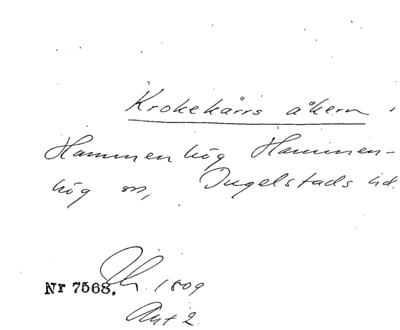 Krokekärrs åkern i
Hammenhög Hammen-
hög sn, Ingelstads hd.
Nr 7568. 1809
Akt 2